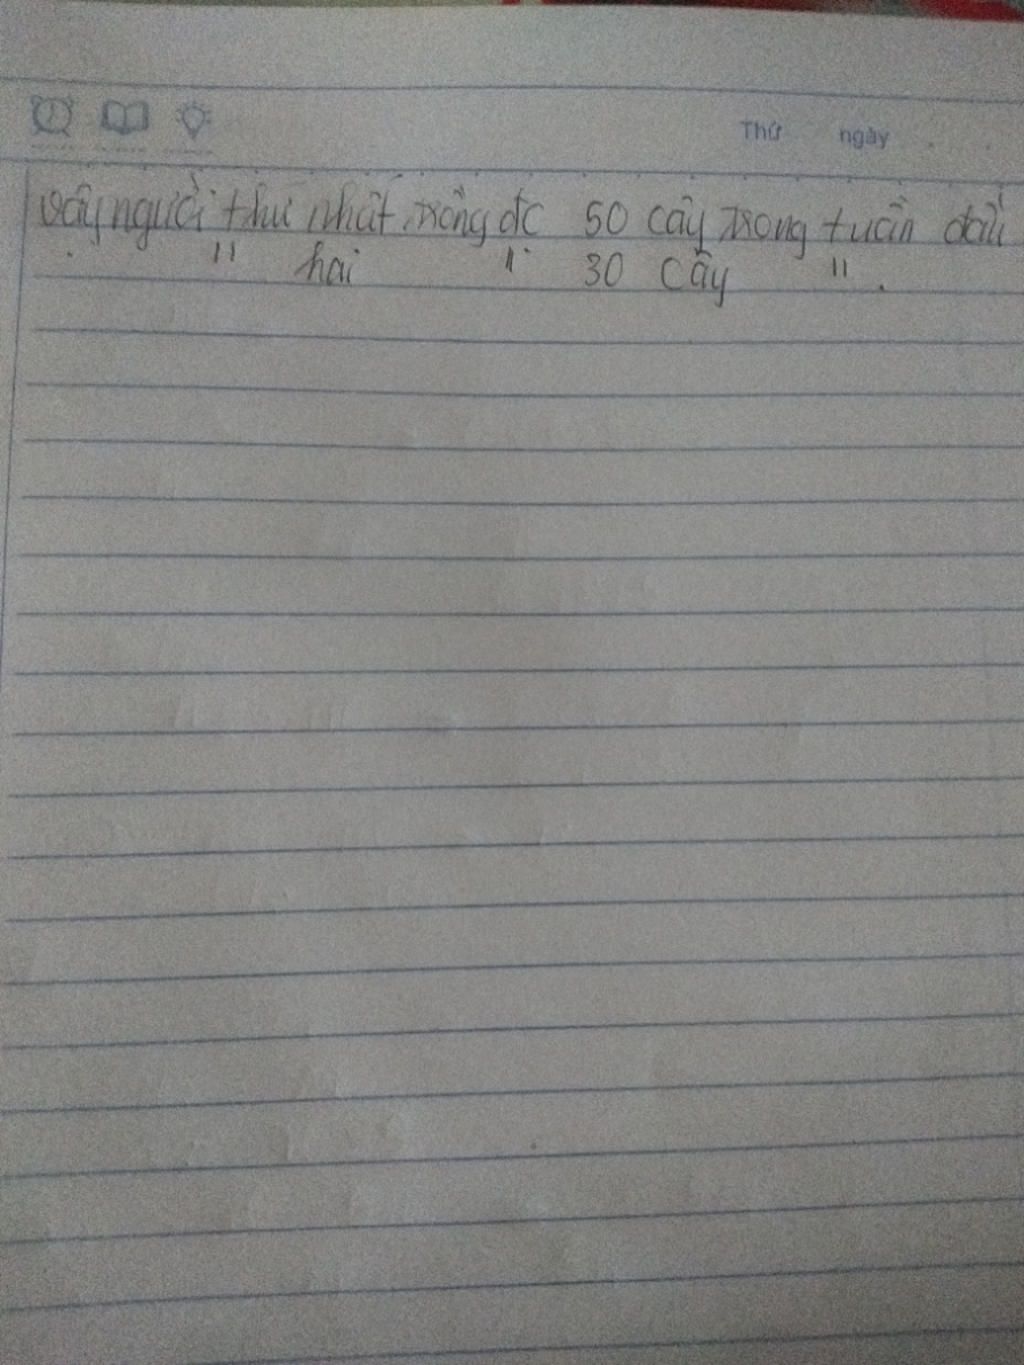 Thứ ngày
Vậy người thứ nhất trồng đc 50 cây trong tuần đầu
" hai " 30 cây " .